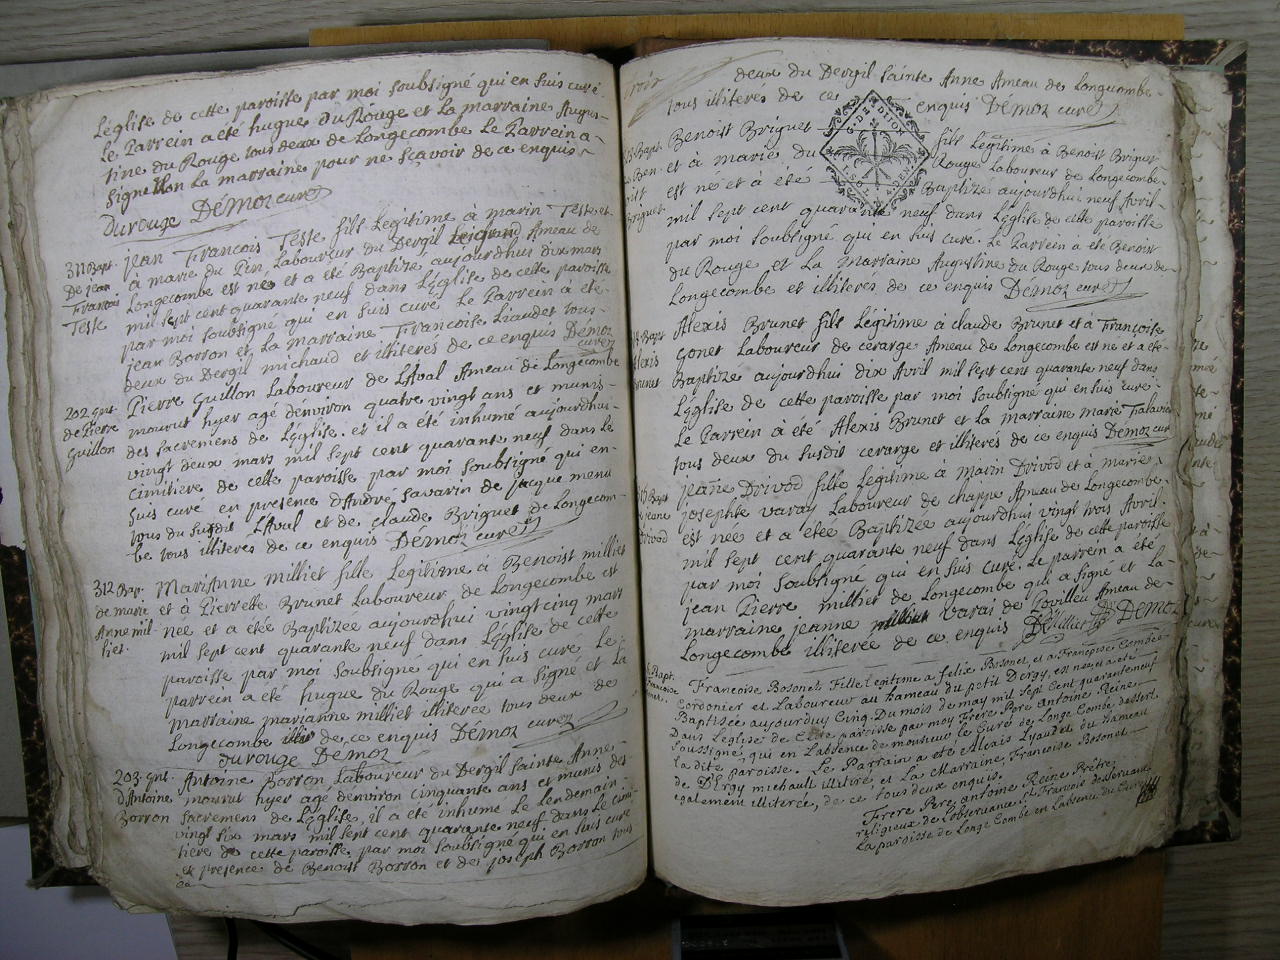 Léglise de cette paroisse par moi soubsigné qui en suis curé.
Le Parrein a eté hugue du Rouge et La marraine Augus-
tine du Rouge tous deux de Longecombe Le Parrein a
signé La marraine pour ne sçavoir de ce enquis
Durouge Démoz curé
311 Bapt.
De jean
Francois
Teste
jean Francois Teste, fils Legitime à marin Teste et
à marie du Pin, Laboureur du Dergil Ameau de
Longecombe est né et a eté Baptizé aujourdhui dix mars
mil sept cent quarante neuf dans L'église de cette paroisse
par moi soubsigné qui en suis curé. Le Parrein à eté
jean Borron et La marraine Francoise Liaudet tous
deux du Dergil michaud et illiterés de ce enquis Démoz
curé
202 gnt.
de Pierre
Guillon
Pierre Guillon Laboureur de LAval Ameau de Longecombe
mourut hyer agé d'environ quatre vingt ans et munis
des sacremens de L'église. et il a été inhumé aujourdhui
vingt deux mars mil sept cent quarante neuf dans Le
cimitiere de cette paroisse par moi soubsigné qui en
suis curé en présence d'Andre savarin de jacque menu
tous du susdit LAval et de claude Briguet de Longecom-
be tous illiterés de ce enquis Démoz curé
312 Bap.
de marie
Anne mil-
liet.
MariAnne milliet fille Legitime à Benoist milliet
et à Pierrette Brunet Laboureur de Longecombe est
née et a étée Baptizée aujourdhui vingt cinq mars
mil sept cent quarante neuf dans L'église de cette
paroisse par moi soubsigné qui en suis curé Le
parrein a été hugue du Rouge qui a signé et La
marraine marianne milliet illiterée tous deux de
Longecombe de ce enquis Démoz curé
Durouge Démoz
203 gnt.
d'Antoine
Borron
Antoine Borron Laboureur du Dergil sainte Anne
mourut hyer agé denviron cinquante ans et munis des
sacremens de L'église, il a été inhumé Le Lendemain
vingt six mars mil sept cent quarante neuf dans Le cimi-
tiere de cette paroisse par moi soubsigné qui en suis curé
en presence de Benoist Borron et de joseph Borron tous
deux du Dergil sainte Anne Ameau de Longecombe
tous illiterés de ce enquis Démoz curé
G. DE DIJON
Bapt.
Ben-
oist
Briguet
Benoist Briguet fils Légitime à Benoist Briguet
et à marie du Rouge Laboureur de Longecombe
est né et à été Baptizé aujourdhui neuf Avril
mil sept cent quarante neuf dans L'église de cette paroisse
par moi soubsigné qui en suis curé. Le Parrein a été Benoit
du Rouge et La marraine Augustine du Rouge tous deux de
Longecombe et illiterés de ce enquis Démoz curé
Bapt
Alexis
Brunet
Alexis Brunet fils Légitime à claude Brunet et à Françoise
Gonet Laboureur de cerarge Ameau de Longecombe est né et a eté
Baptizé aujourdhui dix Avril mil sept cent quarante neuf dans
L'église de cette paroisse par moi soubsigné qui en suis curé.
Le Parrein à été Alexis Brunet et La marraine marie
tous deux du susdit cerarge et illiterés de ce enquis Démoz curé
Bapt
de jeane
Drivod
jeanne Drivod fille Légitime à Marin Drivod et à marie
josephte varay Laboureur de chappe Ameau de Longecombe
est née et a étée Baptizée aujourdhui vingt trois Avril
mil sept cent quarante neuf dans L'église de cette paroisse
par moi soubsigné qui en suis curé. Le parrein a été
jean Pierre milliet de Longecombe qui a signé et La
marraine jeanne varai de Ameau de
Longecombe illiterée de ce enquis Démoz
Bapt.
Francoise
Francoise Bosonet, Fille legitime a felix Bosonet, et a Francoise
Cordonier et Laboureur au hameau du petit Dergy, est neé et a été
Baptisée aujourduy Cinq Du mois de may mil sept Cent quarante neuf
Dans L'église de Cette paroisse par moy Frere Pere Antoine Reine
soussigné, qui en L'absence de monsieur le Curé de Longe Combe dessert
la dite paroisse. Le Parrain a eté Alexis Lyaudet du hameau
de D'Ergy michault illitiré, et La Marraine, Françoise Bosonet
également illiterée, de ce tous deux enquis.
Frere Pere antoine Reine Prêtre
religieux de L'observance St Francois desservant
La paroisse de Longe Combe en L'absence du Curé